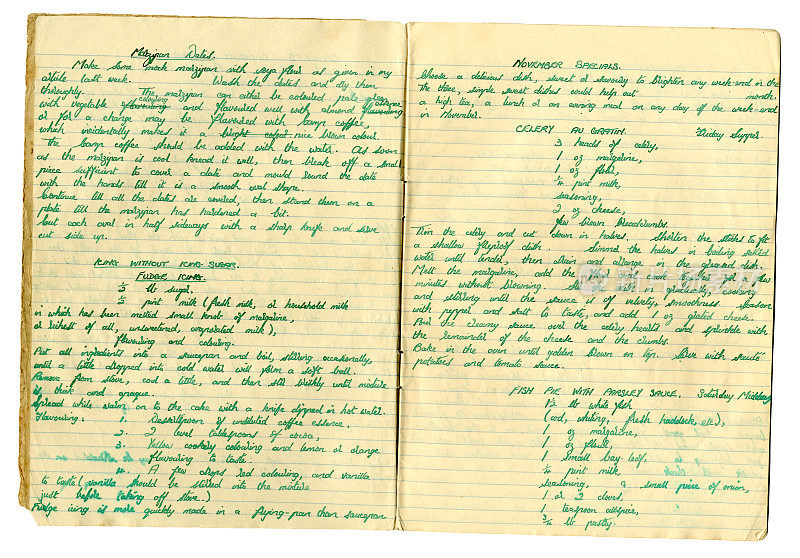 Marzipan Dates.
Make some mock marzipan with soya flour as given in my
article last week. Wash the dates and dry them
thoroughly. The marzipan can either be coloured pale green
with vegetable colouring and flavoured well with almond essence
or for a change may be flavoured with camp coffee,
which incidentally makes it a bright nice brown colour.
The camp coffee should be added with the water. As soon
as the marzipan is cool knead it well, then break off a small
piece sufficient to cover a date and mould round the date
with the hands till it is a smooth oval shape.
Continue till all the dates are covered, then stand them on a
plate till the marzipan has hardened a bit.
Cut each oval in half sideways with a sharp knife and serve
cut side up.
ICING WITHOUT ICING SUGAR.
FUDGE ICING.
lb sugar.
pint milk (fresh milk, or household milk
in which has been melted small knob of margarine,
or richest of all, unsweetened, evaporated milk),
flavouring and colouring.
Put all ingredients into a saucepan and boil, stirring occasionally,
until a little dropped into cold water will form a soft ball.
Remove from stove, cool a little, and then stir briskly until mixture
is thick and opaque.
Spread while warm on to the cake with a knife dipped in hot water.
Flavouring: 1. Dessertspoon of undiluted coffee essence,
2. 2 level tablespoons of cocoa,
3. Yellow cookery colouring and lemon or orange
flavouring to taste.
4. A few drops red colouring, and vanilla
to taste (vanilla should be stirred into the mixture
just before taking off stove.)
Fudge icing is more quickly made in a frying-pan than saucepan
NOVEMBER SPECIALS.
Choose a delicious dish, sweet or savoury to brighten any week-end in the month.
The three, simple sweet dishes could help out
a high tea, a lunch or an evening meal on any day of the week-end
in November.
CELERY AU GRATIN. Friday Supper.
3 heads of celery,
1 oz margarine,
1 oz flour,
pint milk,
seasoning,
2 oz cheese,
few brown breadcrumbs.
Trim the celery and cut down in halves. Shorten the sticks to fit
a shallow fireproof dish. Simmer the halves in boiling salted
water until tender, then drain and arrange in the greased dish.
Melt the margarine, add the flour and cook for a few
minutes without browning. Stir milk in gradually, cooking
and stirring until the sauce is of velvety smoothness. Season
with pepper and salt to taste, and add 1 oz grated cheese.
Pour the creamy sauce over the celery hearts and sprinkle with
the remainder of the cheese and the crumbs.
Bake in the oven until golden brown on top. Serve with sauté
potatoes and tomato sauce.
FISH PIE WITH PARSLEY SAUCE. Saturday Midday
1½ lb white fish
(cod, whiting, fresh haddock, etc),
1 oz margarine,
1 oz flour,
1 small bay-leaf,
pint milk
seasoning, a small piece of onion,
1 or 2 cloves,
1 teaspoon allspice,
¾ lb pastry.